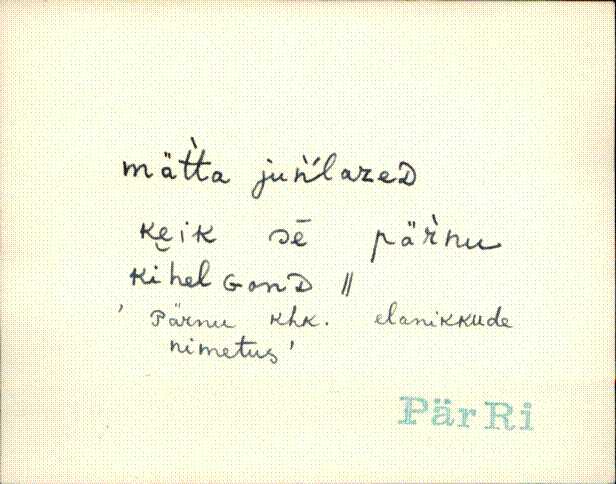 mät̀ta juǹ'lazeD
ke̬ik sē pär̀nu
kihelGonD ||
' Pärnu khk. elanikkude
nimetus '
PärRi